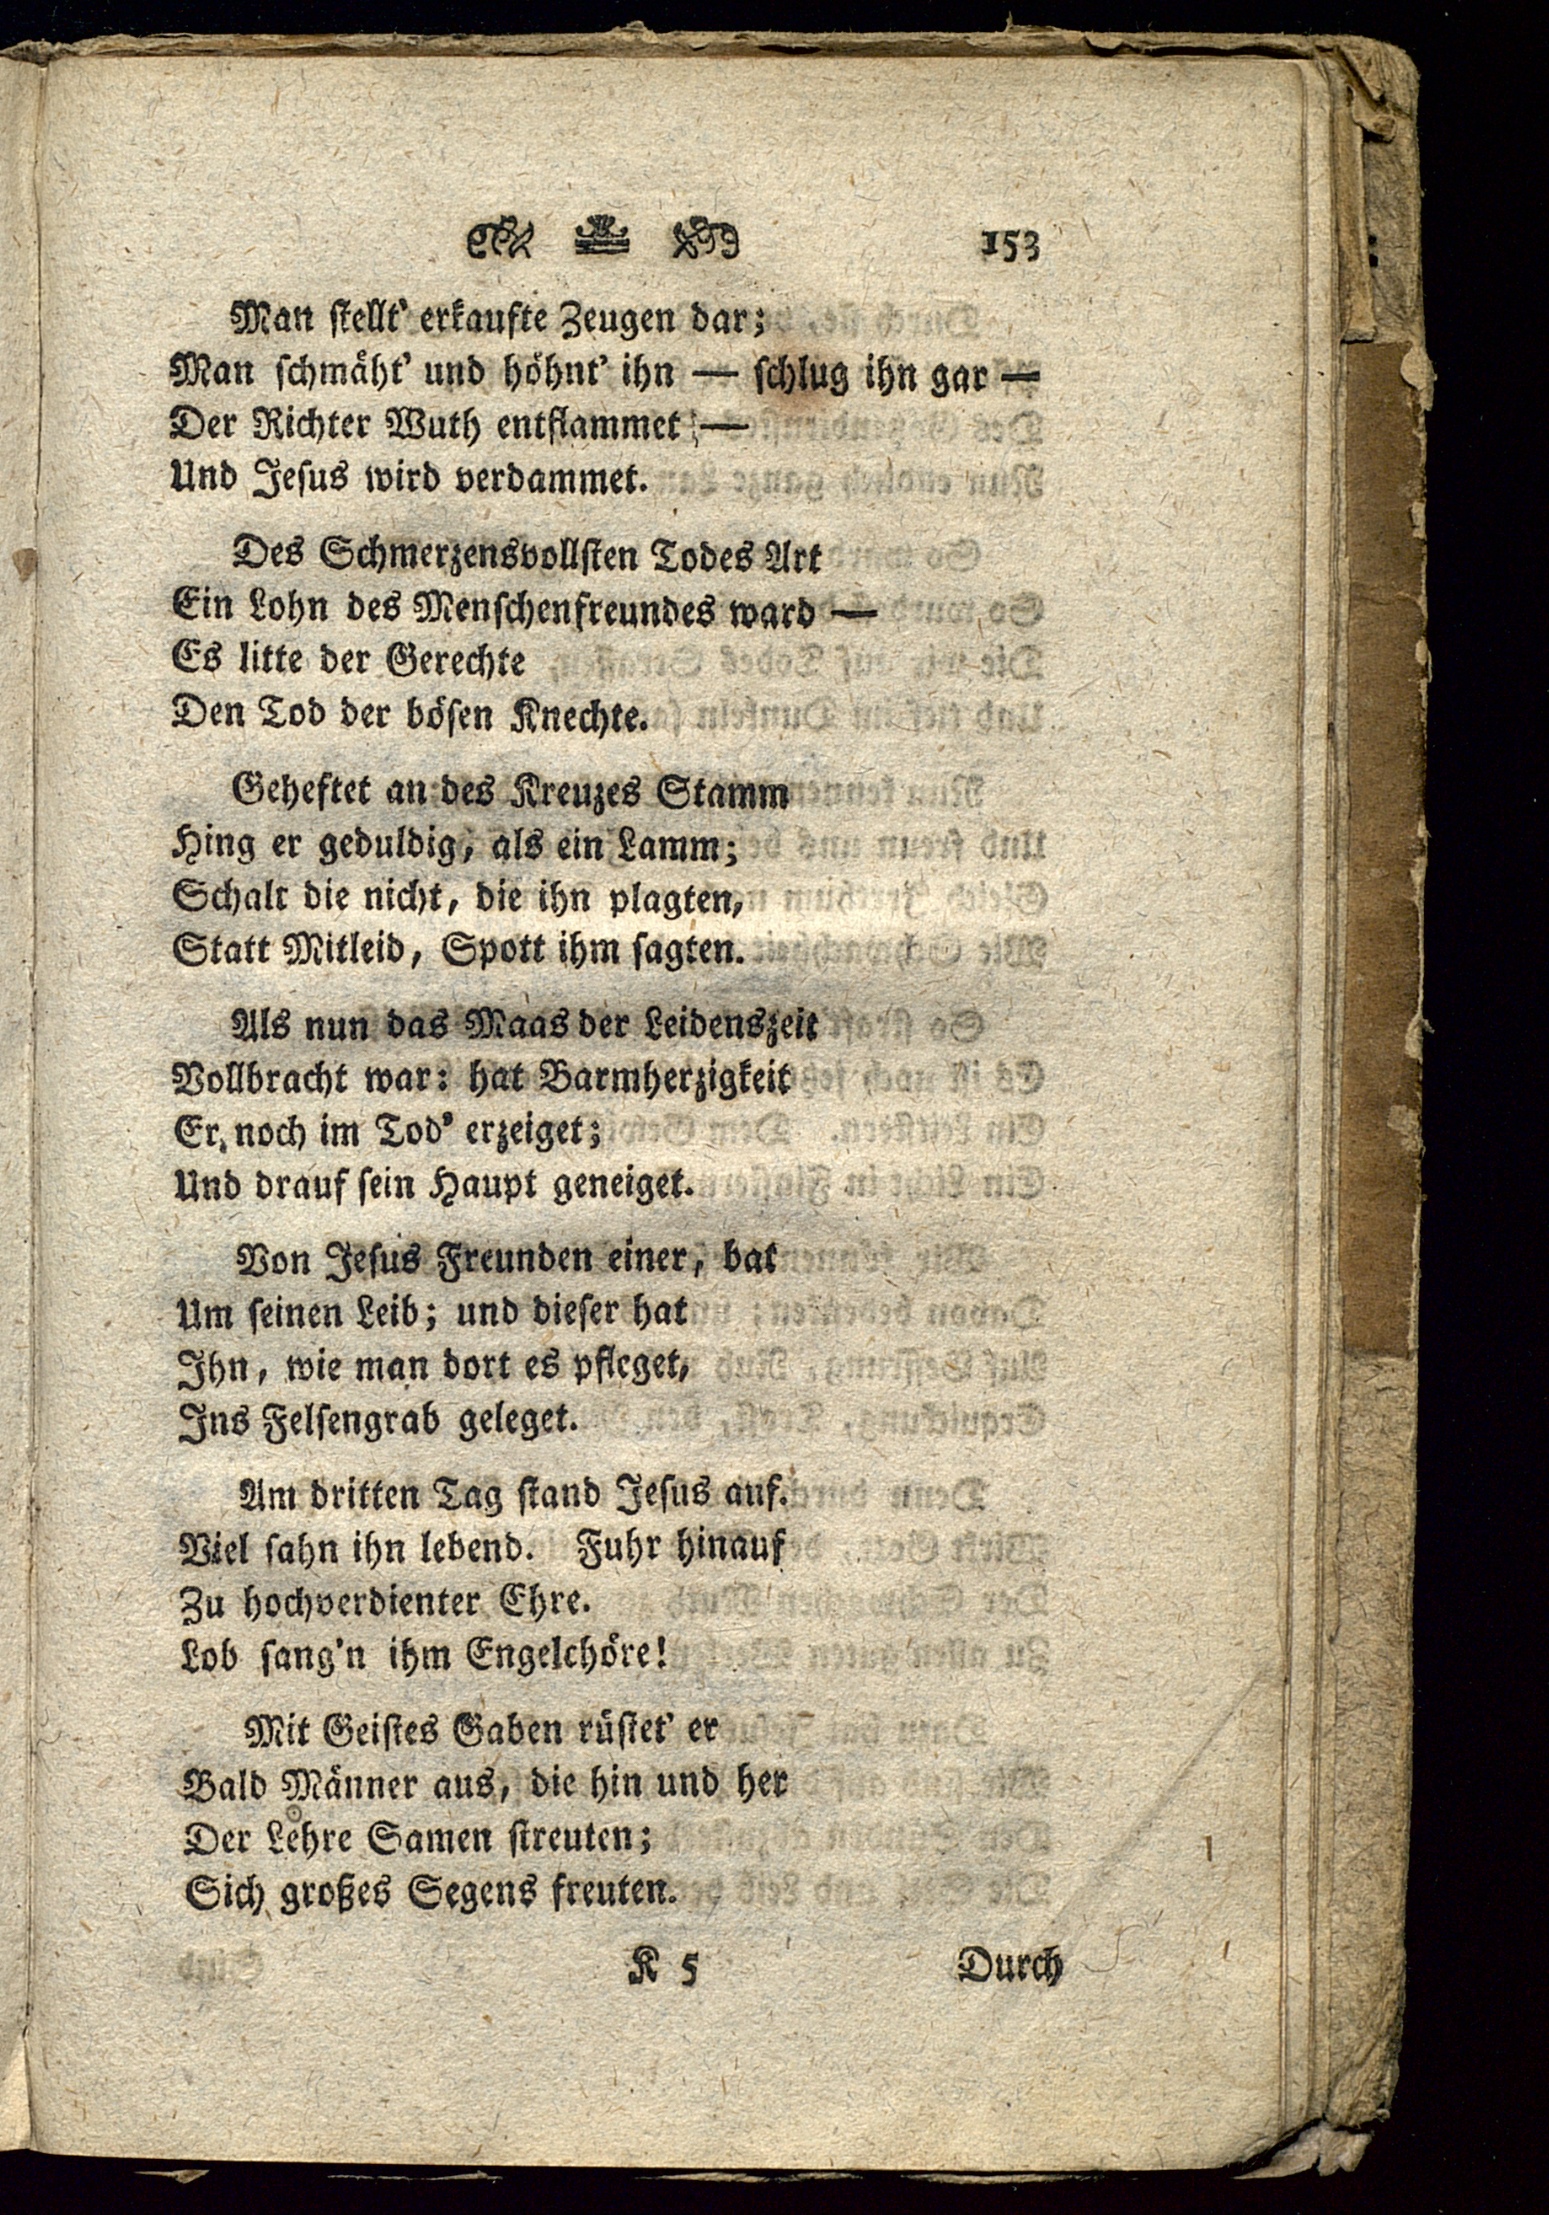 153
Man ſtellt' erkaufte Zeugen dar;
Man ſchmäht' und höhnt' ihn — ſchlug ihn gar —
Der Richter Wuth entflammet —
Und Jeſus wird verdammet.
Des Schmerzensvollſten Todes Art
Ein Lohn des Menſchenfreundes ward —
Es litte der Gerechte
Den Tod der böſen Knechte.
Geheftet an des Kreuzes Stamm
Hing er geduldig, als ein Lamm;
Schalt die nicht, die ihn plagten,
Statt Mitleid, Spott ihm ſagten.
Als nun das Maas der Leidenszeit
Vollbracht war: hat Barmherzigkeit
Er noch im Tod' erzeiget;
Und drauf ſein Haupt geneiget.
Von Jeſus Freunden einer, bat
Um ſeinen Leib; und dieſer hat
Ihn, wie man dort es pfleget,
Ins Felſengrab geleget.
Am dritten Tag ſtand Jeſus auf.
Viel ſahn ihn lebend. Fuhr hinauf
Zu hochverdienter Ehre.
Lob ſang'n ihm Engelchöre!
Mit Geiſtes Gaben rüſtet' er
Bald Männer aus, die hin und her
Der Lehre Samen ſtreuten;
Sich großes Segens freuten.
K 5 Durch